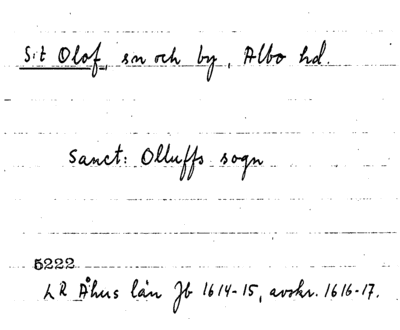 S:t Olof, sn och by, Albo hd.
Sanct: Olluffs sogn
5222
LR Åhus län Jb 1614-15, avskr. 1616-17.